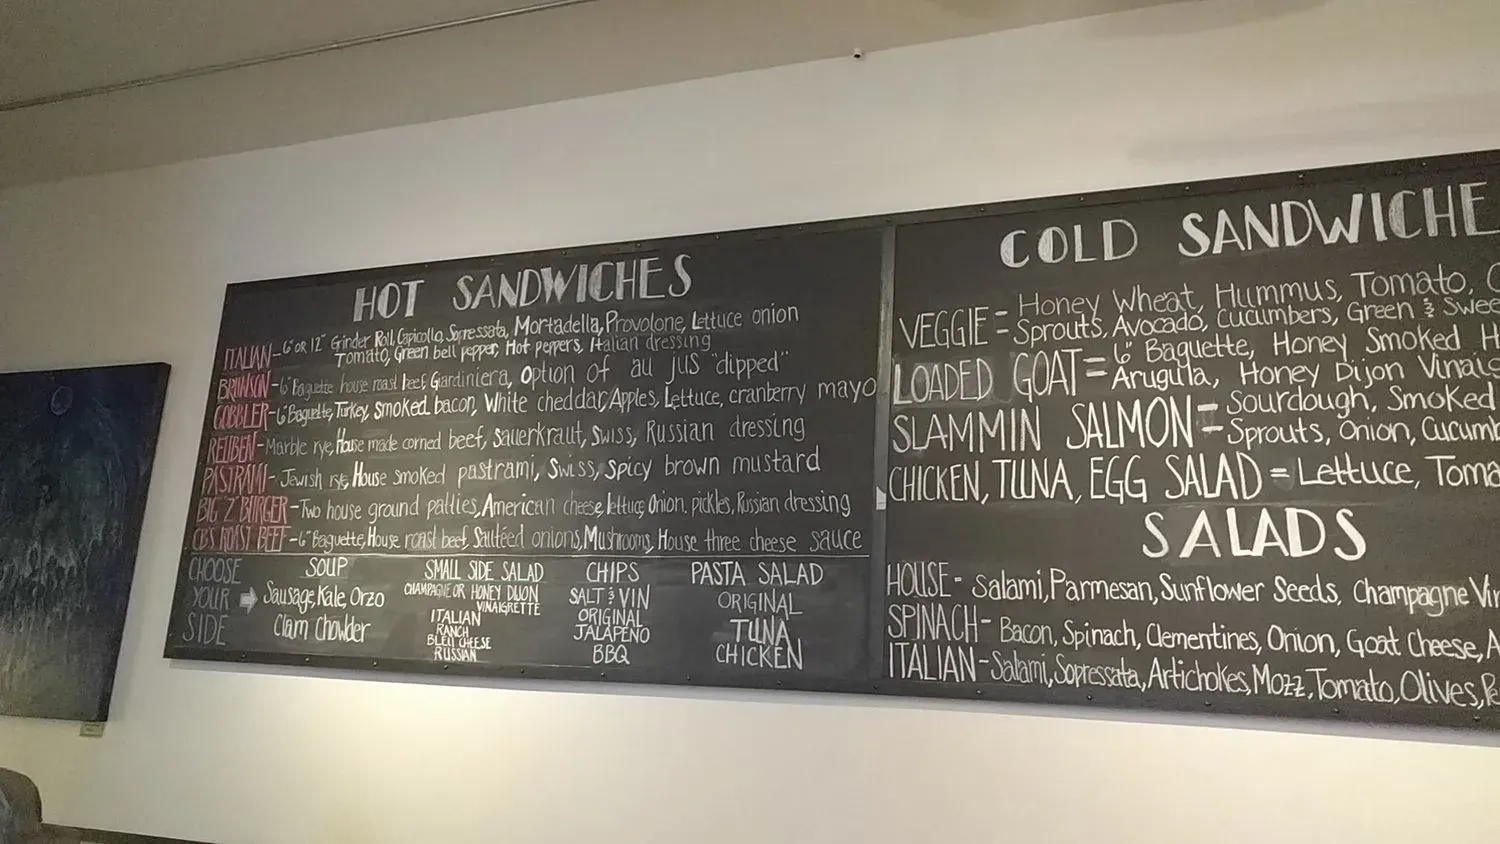 HOT SANDWICHES
ITALIAN - 6" OR 12" Grinder Roll, Capicollo, Sopressata, Mortadella, Provolone, Lettuce onion
Tomato, Green bell pepper, Hot peppers, Italian dressing
- 6" Baguette house roast beef, Giardiniera, Option of au jus "dipped"
GOBBLER - 6" Baguette, Turkey, smoked bacon, White cheddar, Apples, Lettuce, cranberry mayo
REUBEN - Marble rye, House made corned beef, Sauerkraut, Swiss, Russian dressing
PASTRAMI - Jewish rye, House smoked pastrami, Swiss, Spicy brown mustard
BIG Z BURGER - Two house ground patties, American cheese, lettuce, Onion, pickles, Russian dressing
CB'S ROAST BEEF - 6" Baguette, House roast beef, Sautéed onions, Mushrooms, House three cheese sauce
CHOOSE
YOUR
SIDE
SOUP
Sausage, Kale, Orzo
Clam Chowder
SMALL SIDE SALAD
CHAMPAGNE OR HONEY DIJON
VINAIGRETTE
ITALIAN
RANCH
BLEU CHEESE
RUSSIAN
CHIPS
SALT & VIN
ORIGINAL
JALAPEÑO
BBQ
PASTA SALAD
ORIGINAL
TUNA
CHICKEN
COLD SANDWICHE
VEGGIE = Honey Wheat, Hummus, Tomato,
Sprouts, Avocado, Cucumbers, Green & Swee
LOADED GOAT = 6" Baguette, Honey Smoked H
Arugula, Honey Dijon Vinaig
SLAMMIN SALMON = Sourdough, Smoked
Sprouts, Onion, Cucumb
CHICKEN, TUNA, EGG SALAD = Lettuce, Toma
SALADS
HOUSE - Salami, Parmesan, Sunflower Seeds, Champagne Vin
SPINACH - Bacon, Spinach, Clementines, Onion, Goat Cheese, A
ITALIAN - Salami, Sopressata, Artichokes, Mozz, Tomato, Olives, Pe